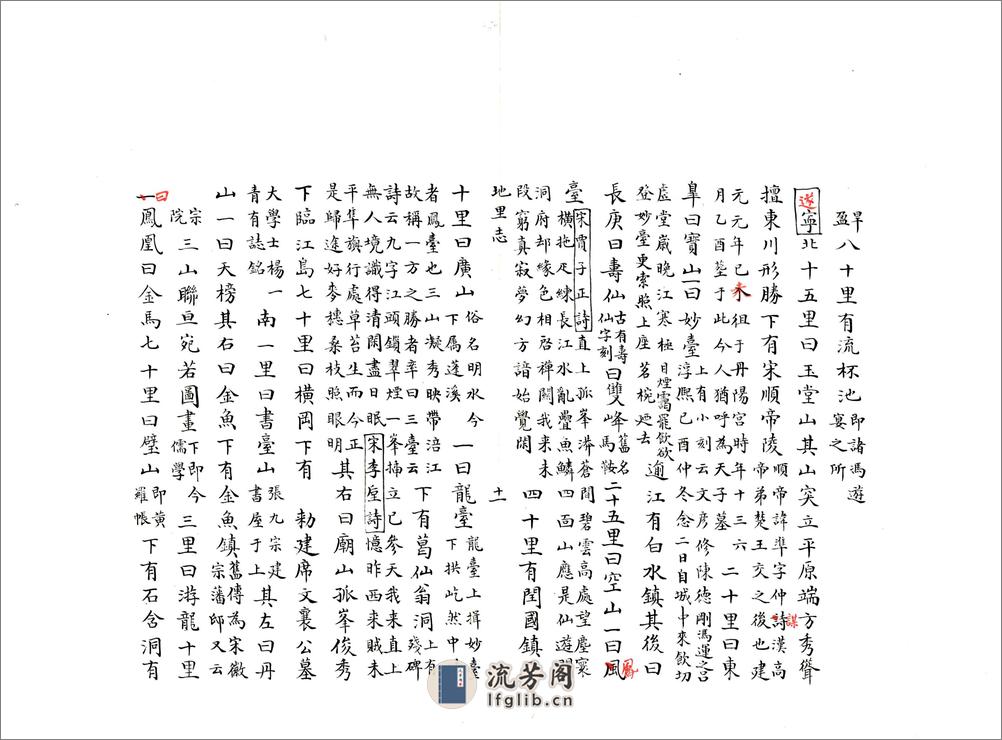 旱盈八十里有流杯池即諸馮遊宴之所
遂寧北十五里曰玉堂山其山突立平原端方秀聳
擅東川形勝下有宋順帝陵順帝諱準字仲謀漢高帝弟楚王交之後也建
元元年己未徂于丹陽宮時年十三六月乙酉塟于此今人猶呼為天子墓二十里曰東
臯曰寶山一曰妙臺上有小刻云文彦修陳德剛馮運之呂淳熙己酉仲冬念二日自城中來飲切
虛堂嵗晚江寒極目煙靄罷飲欲登妙臺更索照上座茗椀廼去遶江有白水鎮其後曰
長庚曰壽仙古有壽仙字刻曰雙人峰舊名馬鞍二十五里曰空山一曰鳳
臺宋賈子正詩直上孤峯漭蒼間碧雲高處望塵寰橫拖疋練長江水亂疊魚鱗四面山應是仙遊
洞府却緣色相启禪關我来未段窮真寂夢幻方諳始覺閑四十里有閏國鎮
地里志 十一
十里曰廣山俗名明水今下馬蓬溪一曰龍臺龍臺上揖妙臺下拱屹然中
者鳳臺也三山凝秀映帶涪江故稱一方之勝者辛曰三臺云下有葛仙翁洞上有殘碑
詩云九字江頭鎖翠煙一峯揷立已參天我来直上無人境識得清閑盡日眠宋李垕詩憶昨西来賊未
平隼旗行處草苔生而今正是歸途好麥穗桑枝照眼明其右曰廟山孤峯俊秀
下臨江島七十里曰橫岡下有 勅建席文襄公墓
大學士楊一青有誌銘南一里曰書臺山張九宗建書屋于上其左曰丹
山一曰天榜其右曰金魚下有金魚鎮舊傳為宋徽宗藩邸又云
宗院三山聯亘宛若圖畫下即今儒學三里曰游龍十里
曰鳳凰曰金馬七十里曰壁山即黄羅帳下有石含洞有
流芳阁
lfglib.cn